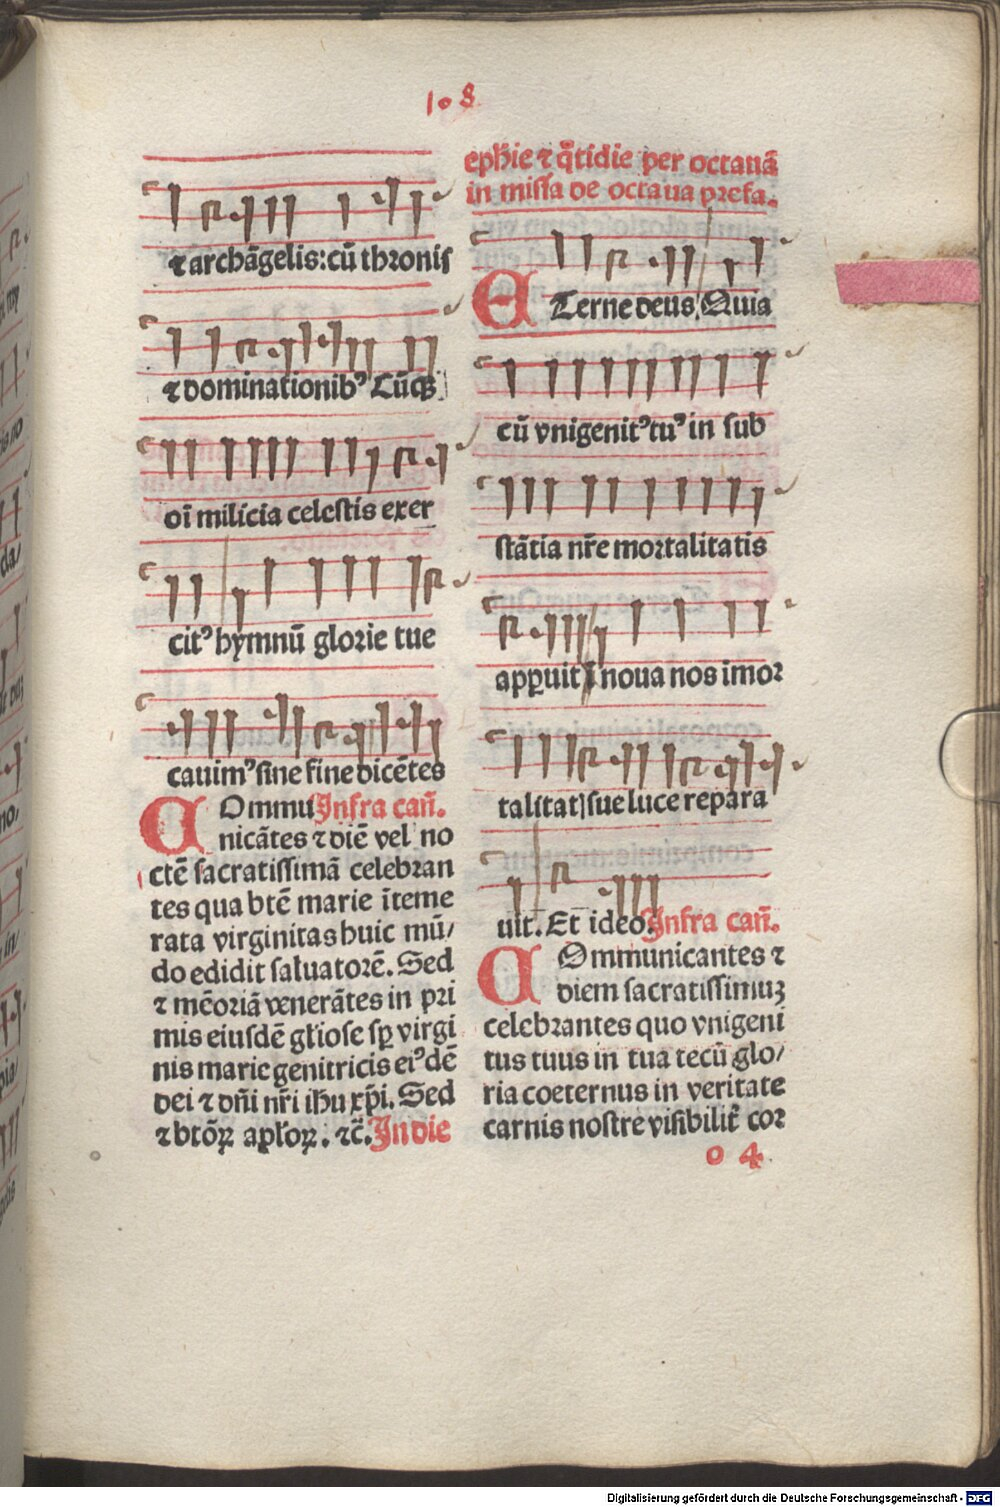 108
⁊ archāgelis: cū thronis
⁊ dominationibꝰ Cūqꝫ
oī milicia celestis exer
citꝰ hymnū glorie tue
cauimꝰ sine fine dicētes
COmmu Infra cañ.
nicātes ⁊ diē vel no
ctē sacratissimā celebran
tes qua btē marie īteme
rata virginitas huic mū/
do edidit saluatorē. Sed
⁊ mēoriā venerātes in pri
mis eiusdē gliose sꝑ virgi
nis marie genitricis eiꝰdē
dei ⁊ dñi nr̄i ihu xp̄i. Sed
⁊ btōꝝ apl'oꝝ. ⁊c̄. In die
ephie ⁊ q̄tidie per octauā
in missa de octaua prefa.
ETerne deus, Quia
cū vnigenitꝰ tuꝰ in sub
stātia nr̄e mortalitatis
apꝑuit ī noua nos īmor
talitatꝭ sue luce repara
uit. Et ideo. Infra cañ.
COmmunicantes ⁊
diem sacratissimuꝫ
celebrantes quo vnigeni
tus tuus in tua tecū glo/
ria coeternus in veritate
carnis nostre visibilit̄ cor
o 4
Digitalisierung gefördert durch die Deutsche Forschungsgemeinschaft - DFG